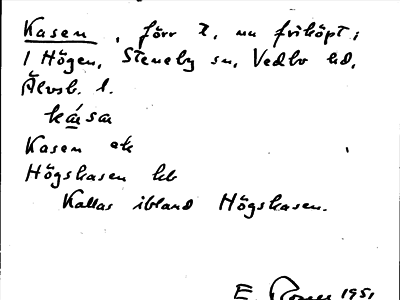 Kasen, förr t, nu friköpt;
i Högen, Steneby sn, Vedbo hd,
Älvsb. l.
ká̲sa
Kasen ek
Högskasen hb
Kallas ibland Högskasen.
E. 1951